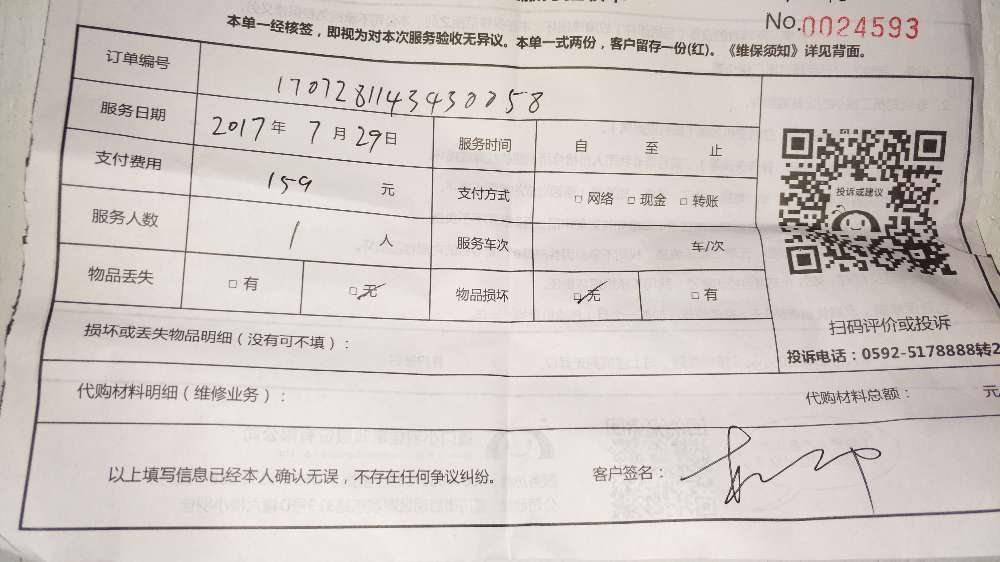 No.0024593
本单一经核签，即视为对本次服务验收无异议。本单一式两份，客户留存一份(红)。《维保须知》详见背面。
订单编号 1707281143430058
服务日期 2017年 7月29日 服务时间 自 至 止
支付费用 159 元 支付方式 □ 网络 □ 现金 □ 转账
服务人数 1 人 服务车次 车/次
物品丢失 □ 有 □ 无 物品损坏 □ 无 □ 有
投诉或建议
扫码评价或投诉
投诉电话：0592-5178888转2
损坏或丢失物品明细（没有可不填）：
代购材料明细（维修业务）： 代购材料总额： 元
以上填写信息已经本人确认无误，不存在任何争议纠纷。 客户签名：